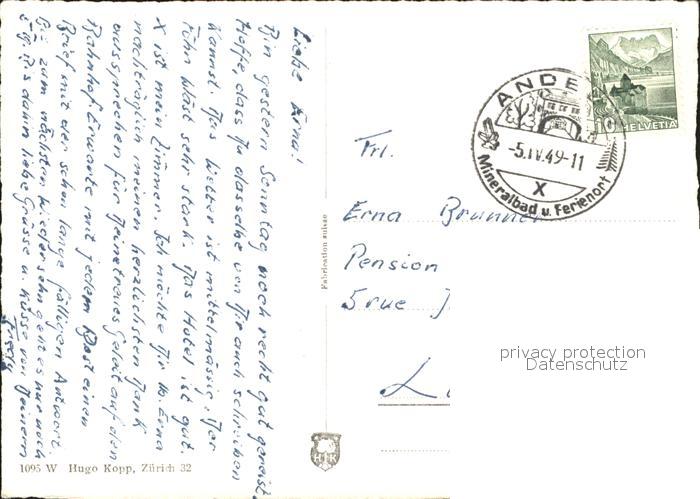 Liebe Erna!
Bin gestern Sonntag noch recht gut gereist.
Hoffe, dass Du dasselbe von Dir auch schreiben
kannst. Das Wetter ist mittelmässig. Der
Föhn bläst sehr stark. Das Hotel ist gut.
X ist mein Zimmer. Ich möchte Dir lb. Erna
nachträglich meinen herzlichsten Dank
aussprechen für Deine treues Geleit auf den
Bahnhof. Erwarte mit jedem Post einen
Brief mit der schon lange fälligen Antwort.
Bis zum nächsten Wiedersehn geht es nur noch
5 Tg. Bis dahin liebe Grüsse u. Küsse von Deinem
Fred
1095 W Hugo Kopp, Zürich 32
Fabrication suisse
HK
ANDE
-5.IV.49-11
X
Mineralbad u. Ferienort
10 HELVETIA
Frl.
Erna Brunner
Pension
5 rue
L
privacy protection
Datenschutz